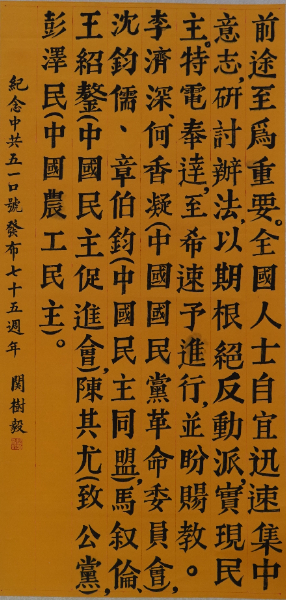 前途至爲重要。全國人士自宜迅速集中
意志,研討辦法,以期根絕反動派,實現民
主。特電奉達,至希速予進行,並盼賜教。
李濟深、何香凝(中國國民黨革命委員會),
沈鈞儒、章伯鈞(中國民主同盟),馬叙倫、
王紹鏊(中國民主促進會),陳其尤(致公黨),
彭澤民(中國農工民主)。
紀念中共五一口號發布七十五週年 関樹毅